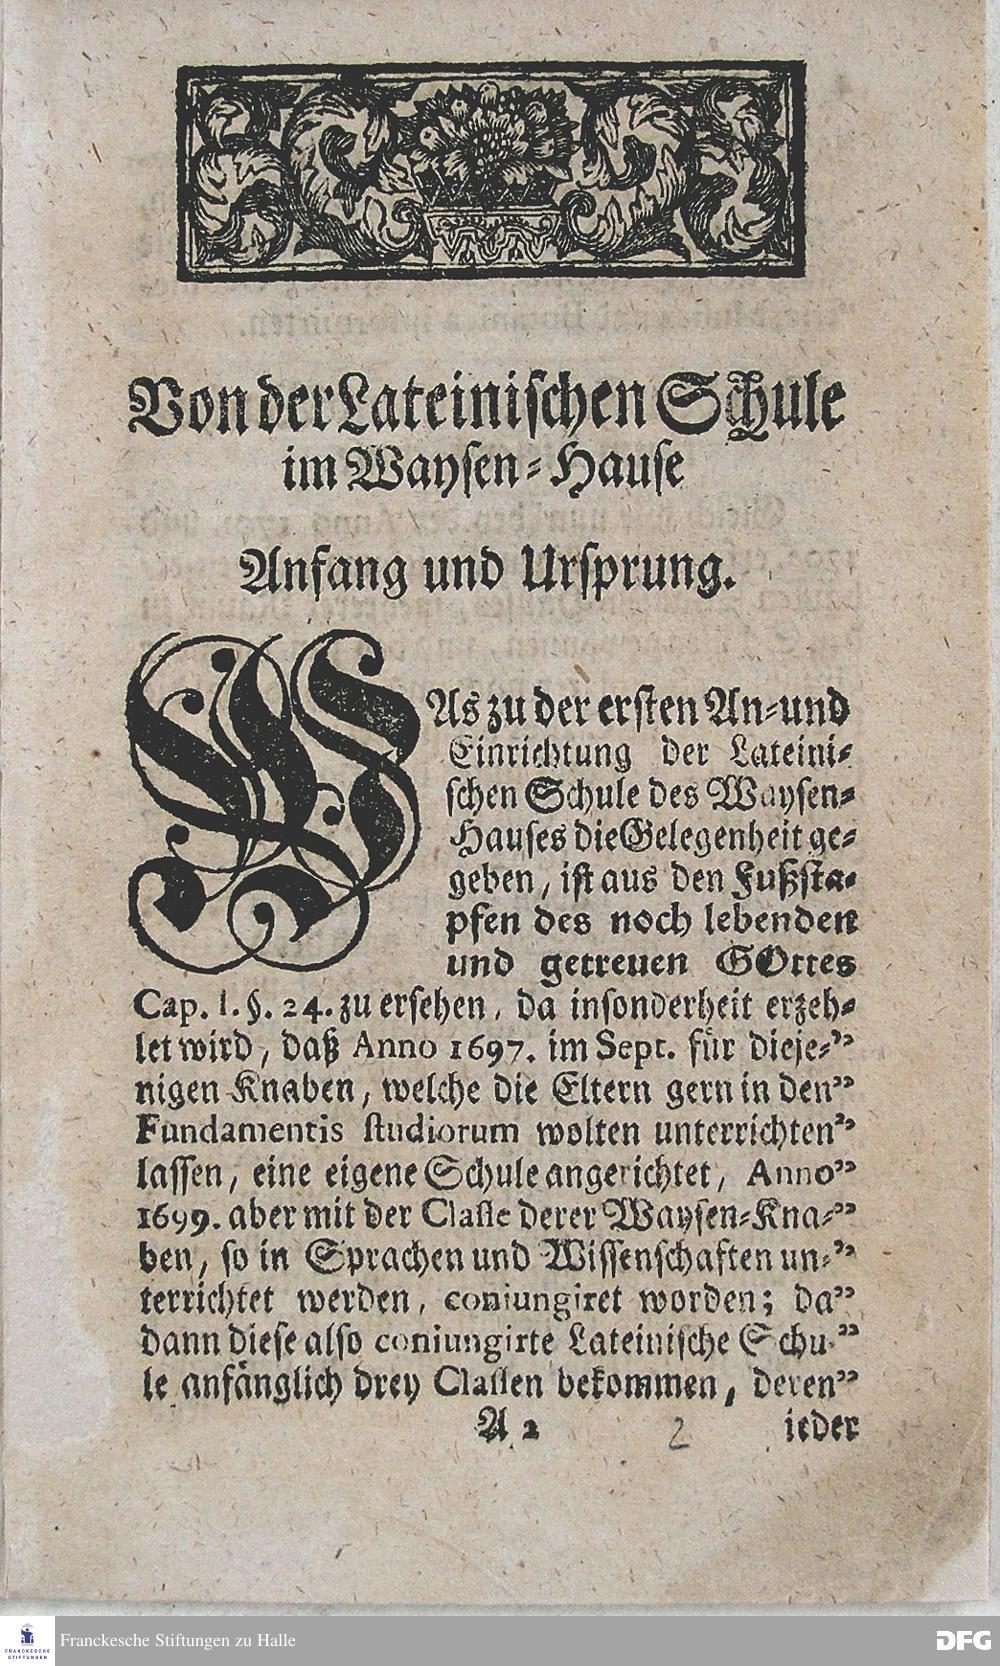 Von der Lateinischen Schule
im Waysen-Hause
Anfang und Ursprung.
WAs zu der ersten An-und
Einrichtung der Lateini-
schen Schule des Waysen-
Hauses die Gelegenheit ge-
geben, ist aus den Fußsta-
pfen des noch lebenden
und getreuen GOttes
Cap. I. §. 24. zu ersehen, da insonderheit erzeh-
let wird, daß Anno 1697. im Sept. für dieje-"
nigen Knaben, welche die Eltern gern in den"
Fundamentis studiorum wolten unterrichten"
lassen, eine eigene Schule angerichtet, Anno"
1699. aber mit der Classe derer Waysen-Kna-"
ben, so in Sprachen und Wissenschaften un-"
terrichtet werden, coniungiret worden; da"
dann diese also coniungirte Lateinische Schu-"
le anfänglich drey Classen bekommen, deren"
A 2 2 ieder
FRANCKESCHE STIFTUNGEN Franckesche Stiftungen zu Halle DFG